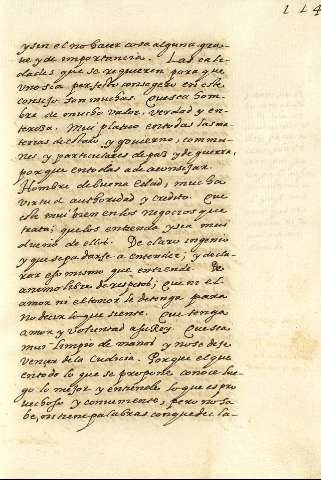 114
y sin el no hacer cosa alguna gra-
ue y de importancia. Las cali-
dades que se requieren para que
vno sea perfecto consegero en este
consejo son muchas. Que sea hom-
bre de mucho valor, verdad y en-
tereza. Mui platico en todas las ma-
terias de estado y gouierno, commu-
nes y particulares de paz y de guerra,
porque en todas a de aconsejar.
Hombre de buena edad, mucha
virtud authoridad y credito. Que
este mui bien en los negocios que
trata; que los entienda y sea mui
dueño de ellos. De claro ingenio
y que sepa darse a entender, y decla-
rar esso mismo que entiende. De
animo libre de respetos; que no el
amor ni el temor le detenga para
no decir lo que siente. Que tenga
amor y voluntad a su Rey. Que sea
mui limpio de manos y no se deje
vençer de la cudicia. Porque el que
en todo lo que se propone conoce lue-
go lo mejor y entiende lo que es pro
uechoso y conueniente, pero no sa-
be, ni tiene palabras con que decla-